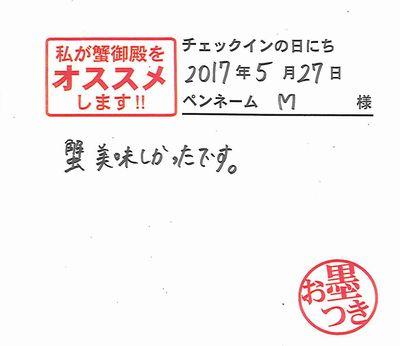 私が蟹御殿を
オススメ
します!!
チェックインの日にち
2017年5月27日
ペンネーム M 様
蟹美味しかったです。
お墨
つき